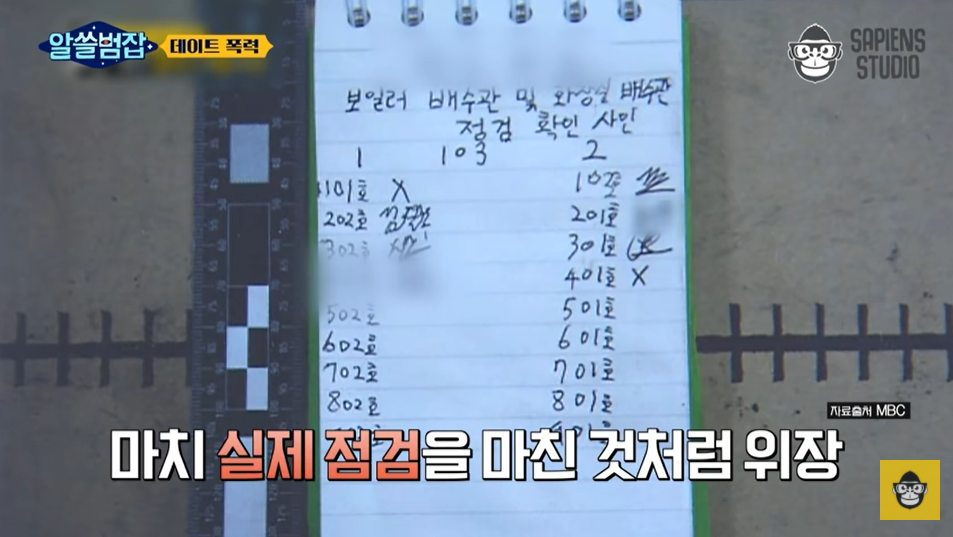 알쓸범잡
데이트 폭력
SAPIENS
STUDIO
보일러 배수관 및 화장실 배수관
정검 확인 사인
1 103 2
1101호 X
102호
202호
201호
302호
301호
401호 X
502호
501호
602호
601호
702호
701호
802호
801호
자료출처 MBC
마치 실제 점검을 마친 것처럼 위장